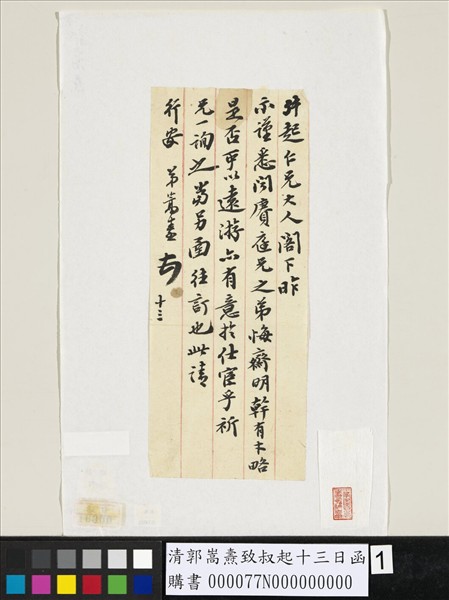 叔起仁兄大人閣下昨
示謹悉聞賡庭兄之弟悔齋明幹有才略
是否可以遠游亦有意於仕宦乎祈
兄一詢之當另面往訂也此請
行安 弟嵩燾
十三
清郭嵩燾致叔起十三日函
購書 000077N000000000
1